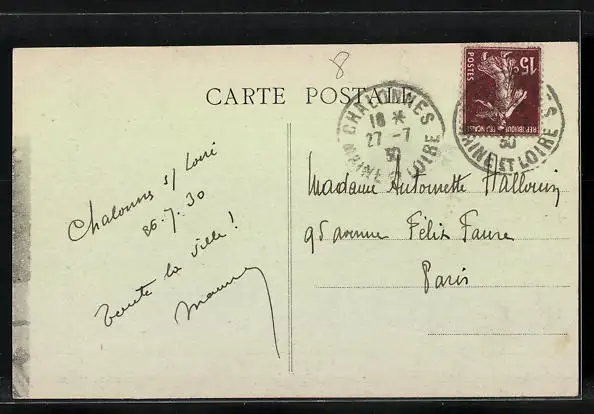 8
CARTE POSTALE
CHALONNES
18 *
27 - 7
30
MAINE ET LOIRE
15c
POSTES
REPUBLIQUE FRANCAISE
30
MAINE ET LOIRE
Chalonnes s/ Loire
26.7.30
toute la ville !
Madame Antoinette Hallouin
95 avenue Félix Faure
Paris